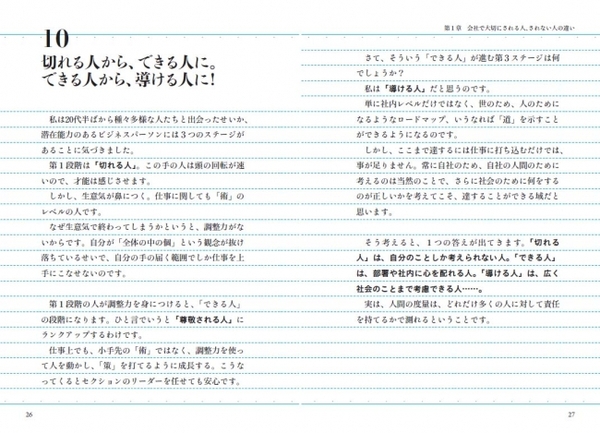 10
切れる人から、できる人に。
できる人から、導ける人に！
私は20代半ばから種々多様な人たちと出会ったせいか、
潜在能力のあるビジネスパーソンには３つのステージが
あることに気づきました。
第１段階は「切れる人」。この手の人は頭の回転が速
いので、才能は感じさせます。
しかし、生意気が鼻につく。仕事に関しても「術」の
レベルの人です。
なぜ生意気で終わってしまうかというと、調整力がな
いからです。自分が「全体の中の個」という観念が抜け
落ちているせいで、自分の手の届く範囲でしか仕事を上
手にこなせないのです。
第１段階の人が調整力を身につけると、「できる人」
の段階になります。ひと言でいうと「尊敬される人」に
ランクアップするわけです。
仕事上でも、小手先の「術」ではなく、調整力を使っ
て人を動かし、「策」を打てるように成長する。こうな
ってくるとセクションのリーダーを任せても安心です。
26
第１章　会社で大切にされる人、されない人の違い
さて、そういう「できる人」が進む第３ステージは何
でしょうか？
私は「導ける人」だと思うのです。
単に社内レベルだけではなく、世のため、人のために
なるようなロードマップ、いうなれば「道」を示すこと
ができるようになるのです。
しかし、ここまで達するには仕事に打ち込むだけでは、
事が足りません。常に自社のため、自社の人間のために
考えるのは当然のことで、さらに社会のために何をする
のが正しいかを考えてこそ、達することができる域だと
思います。
そう考えると、１つの答えが出てきます。「切れる
人」は、自分のことしか考えられない人。「できる人」
は、部署や社内に心を配れる人。「導ける人」は、広く
社会のことまで考慮できる人……。
実は、人間の度量は、どれだけ多くの人に対して責任
を持てるかで測れるということです。
27